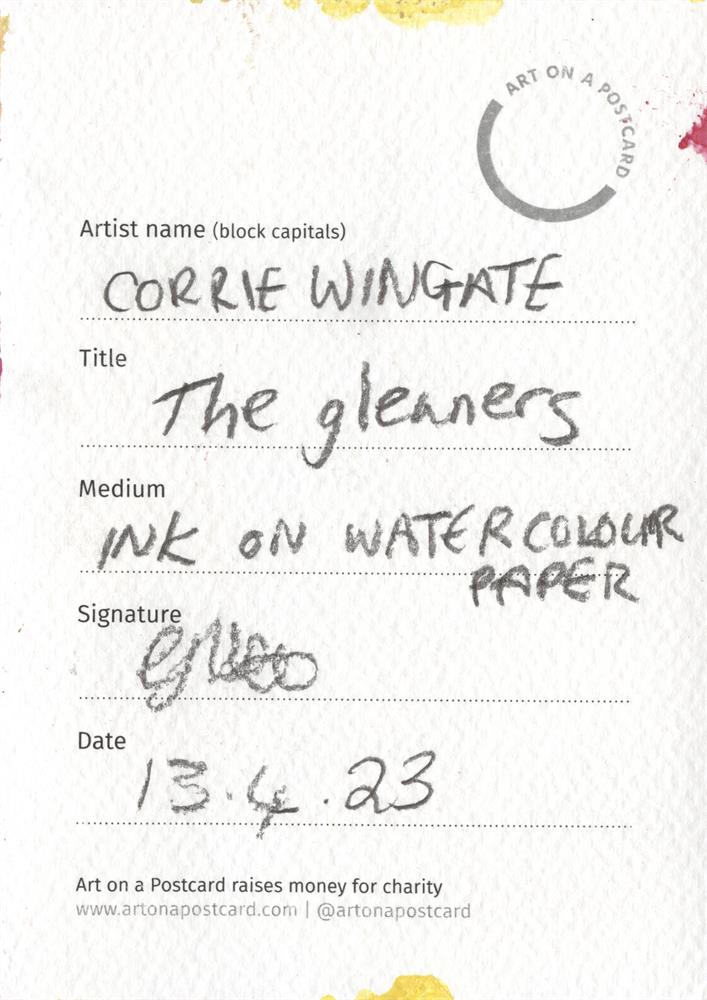 ART ON A POSTCARD
Artist name (block capitals)
CORRIE WINGATE
Title
The gleaners
Medium
INK ON WATERCOLOUR
PAPER
Signature
Date
13.4.23
Art on a Postcard raises money for charity
www.artonapostcard.com | @artonapostcard